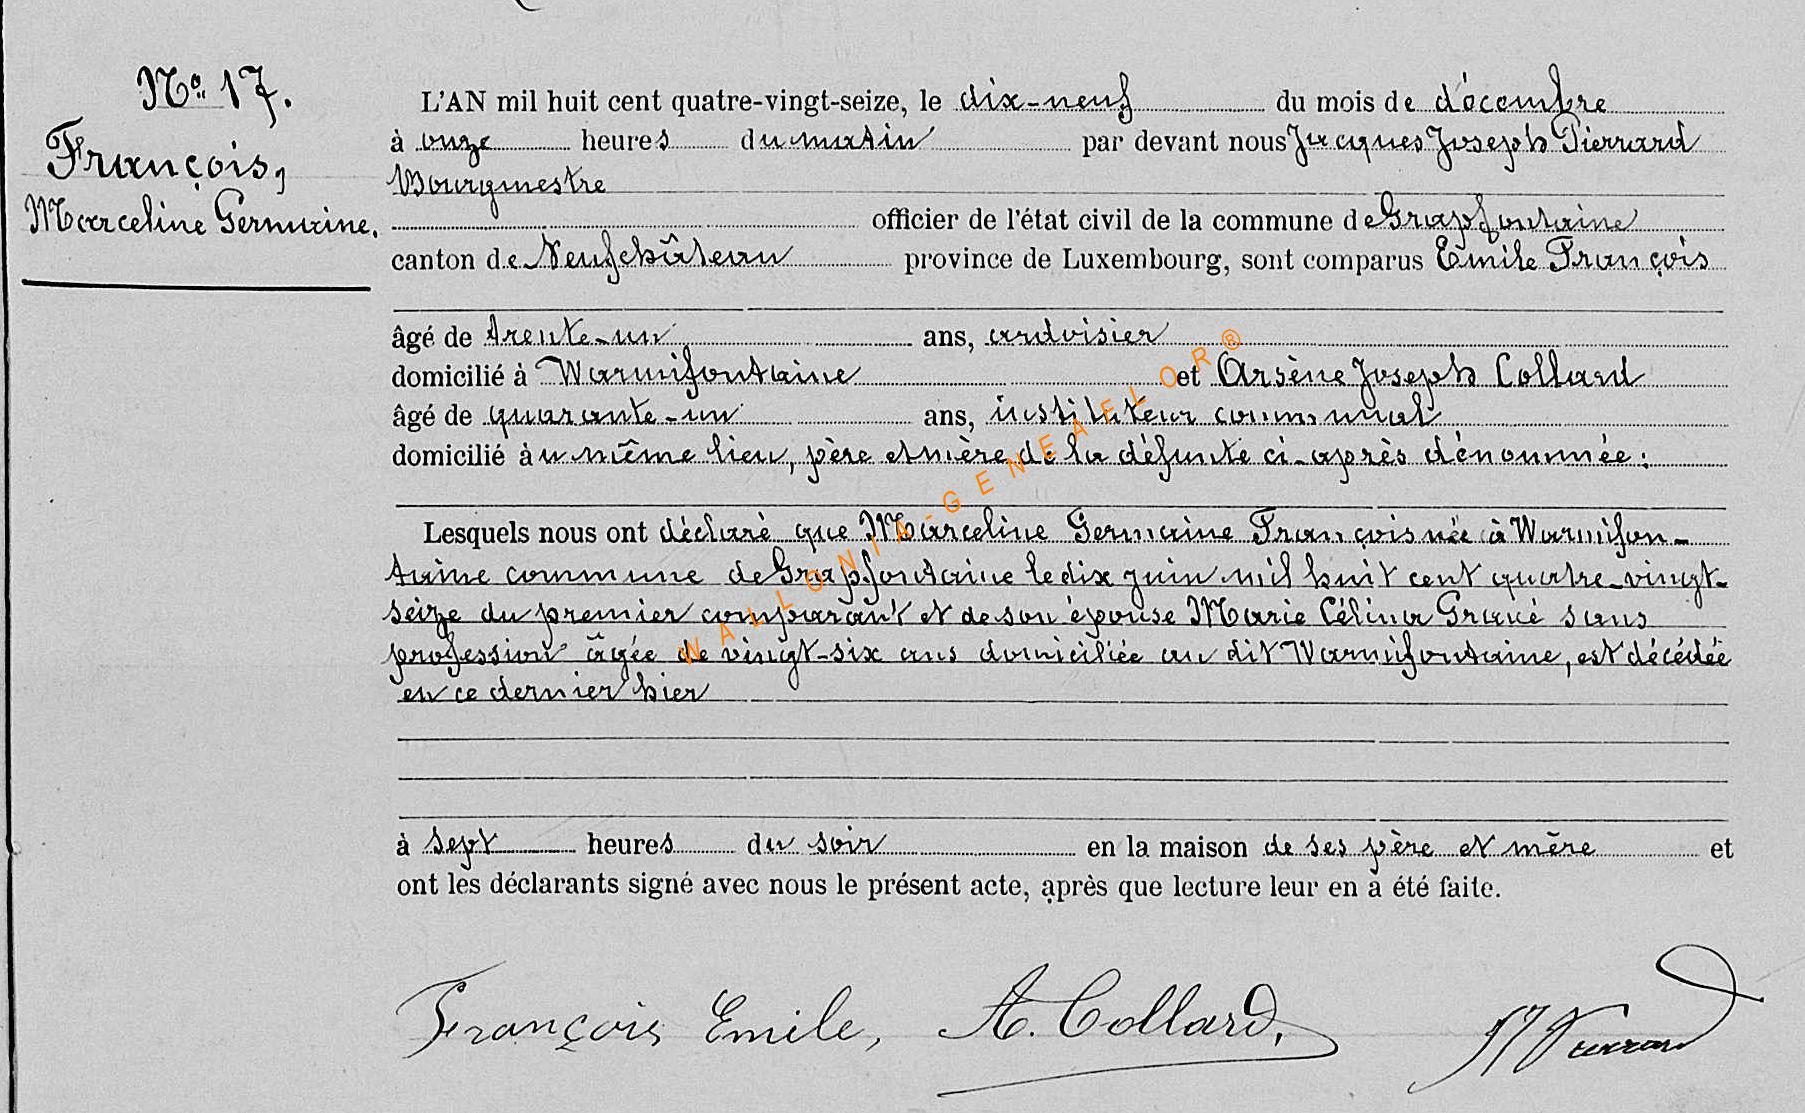 No 17.
François,
Marceline Germaine.
L'AN mil huit cent quatre-vingt-seize, le dix-neuf du mois de décembre
à onze heures du matin par devant nous Jacques Joseph Pierrard
Bourgmestre
officier de l'état civil de la commune de Grapfontaine
canton de Neufchâteau province de Luxembourg, sont comparus Emile François
âgé de trente-un ans, ardoisier
domicilié à Warmifontaine et Arsène Joseph Collard
âgé de quarante-un ans, instituteur communal
domicilié au même lieu, père et mère de la défunte ci-après dénommée :
Lesquels nous ont déclaré que Marceline Germaine François née à Warmifon-
taine commune de Grapfontaine le dix juin mil huit cent quatre-vingt-
seize du premier comparant et de son épouse Marie Célina sans
profession âgée de vingt-six ans domiciliée au dit Warmifontaine, est décédée
en ce dernier hier
à sept heures du soir en la maison de ses père et mère et
ont les déclarants signé avec nous le présent acte, après que lecture leur en a été faite.
François Emile, A. Collard, Pierrard
WALLONIA-GENEAELOR®